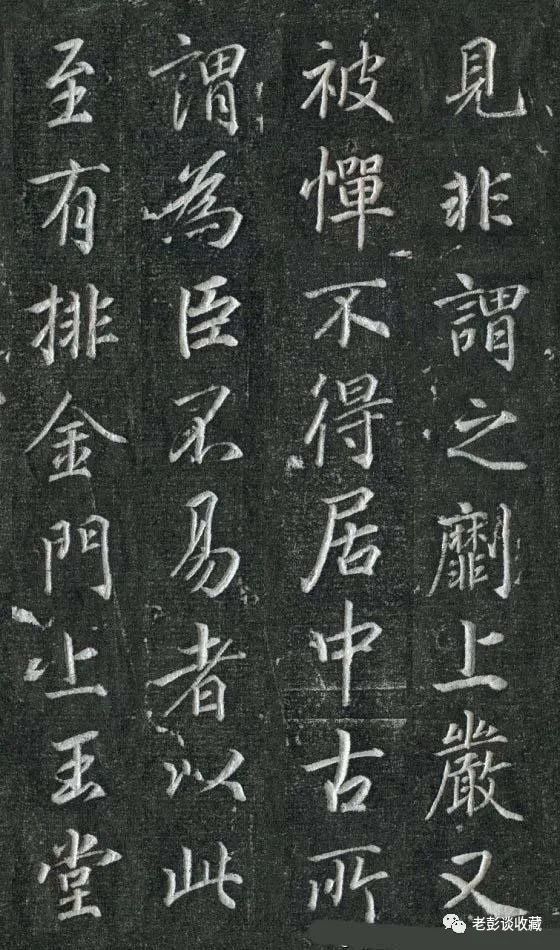 見非謂之劘上嚴又
被憚不得居中古所
謂為臣不易者以此
至有排金門上玉堂
老彭谈收藏